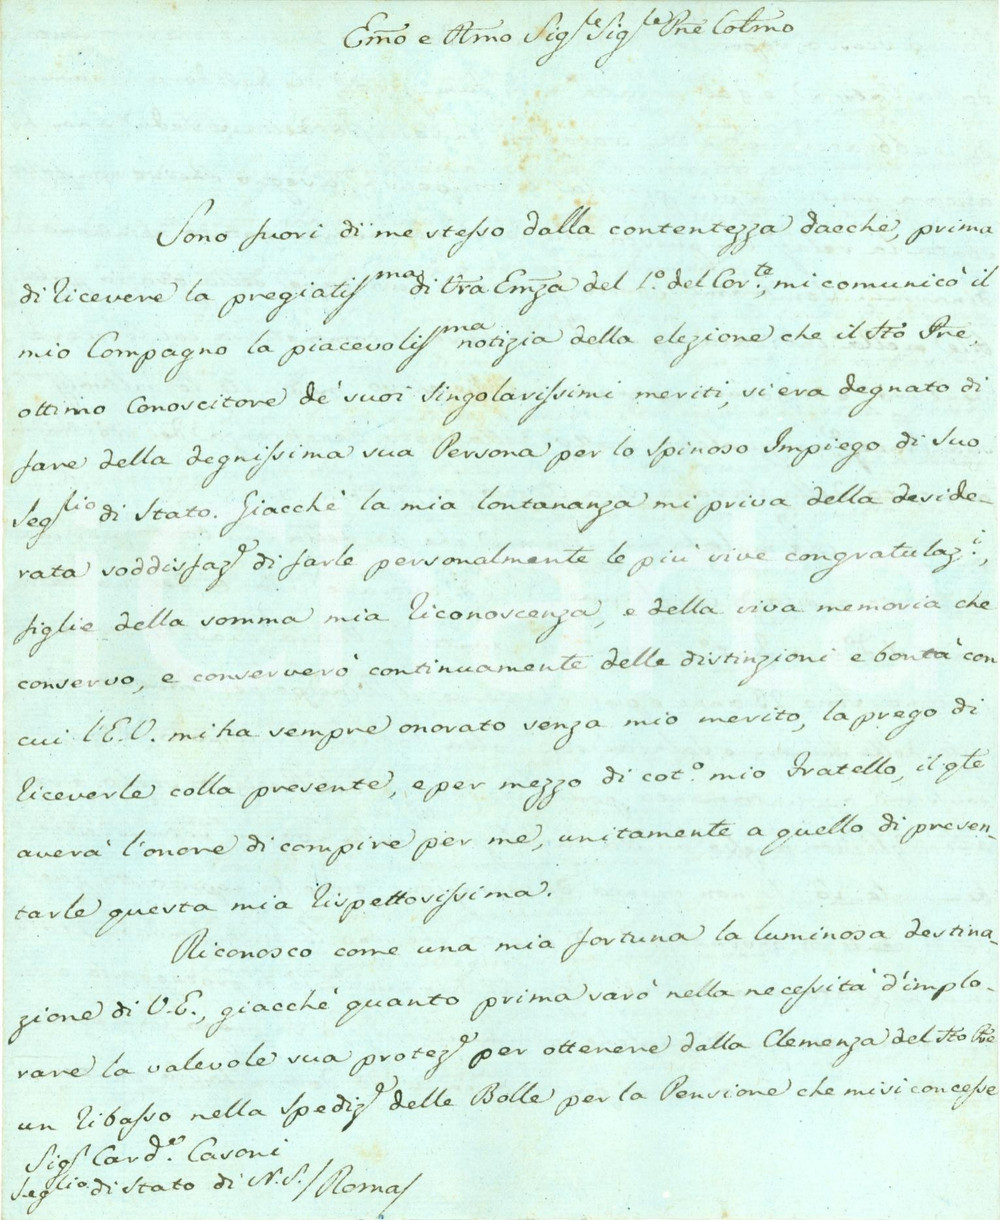 Emo e Rmo Sigre Sigre Pne Colmo
Sono fuori di me stesso dalla contentezza dacchè, prima
di ricevere la pregiatissma di Vra Emza del 1.° del Corte, mi comunicò il
mio Compagno la piacevolissma notizia della elezione che il Sto Pre,
ottimo Conoscitore de' suoi singolarissimi meriti, si era degnato di
fare della degnissima sua Persona per lo spinoso Impiego di Suo
Segrio di Stato. Giacchè la mia lontananza mi priva della deside-
rata soddisfaze di farle personalmente le più vive congratulazi,
figlie della somma mia riconoscenza, e della viva memoria che
conservo, e conserverò continuamente delle distinzioni e bontà con
cui l'E.V. mi ha sempre onorato senza mio merito, la prego di
riceverle colla presente, e per mezzo di cot.° mio Fratello, il qle
averà l'onore di compire per me, unitamente a quello di presen-
tarle questa mia rispettosissima.
Riconosco come una mia fortuna la luminosa destina-
zione di V.E., giacchè quanto prima sarò nella necessità d'implo-
rare la valevole sua proteze per ottenere dalla Clemenza del Sto Pre
un ribasso nella spedize delle Bolle per la Pensione che mi si concesse
Sigr Carde. Casoni
Segrio. di Stato di N.S./ Roma/